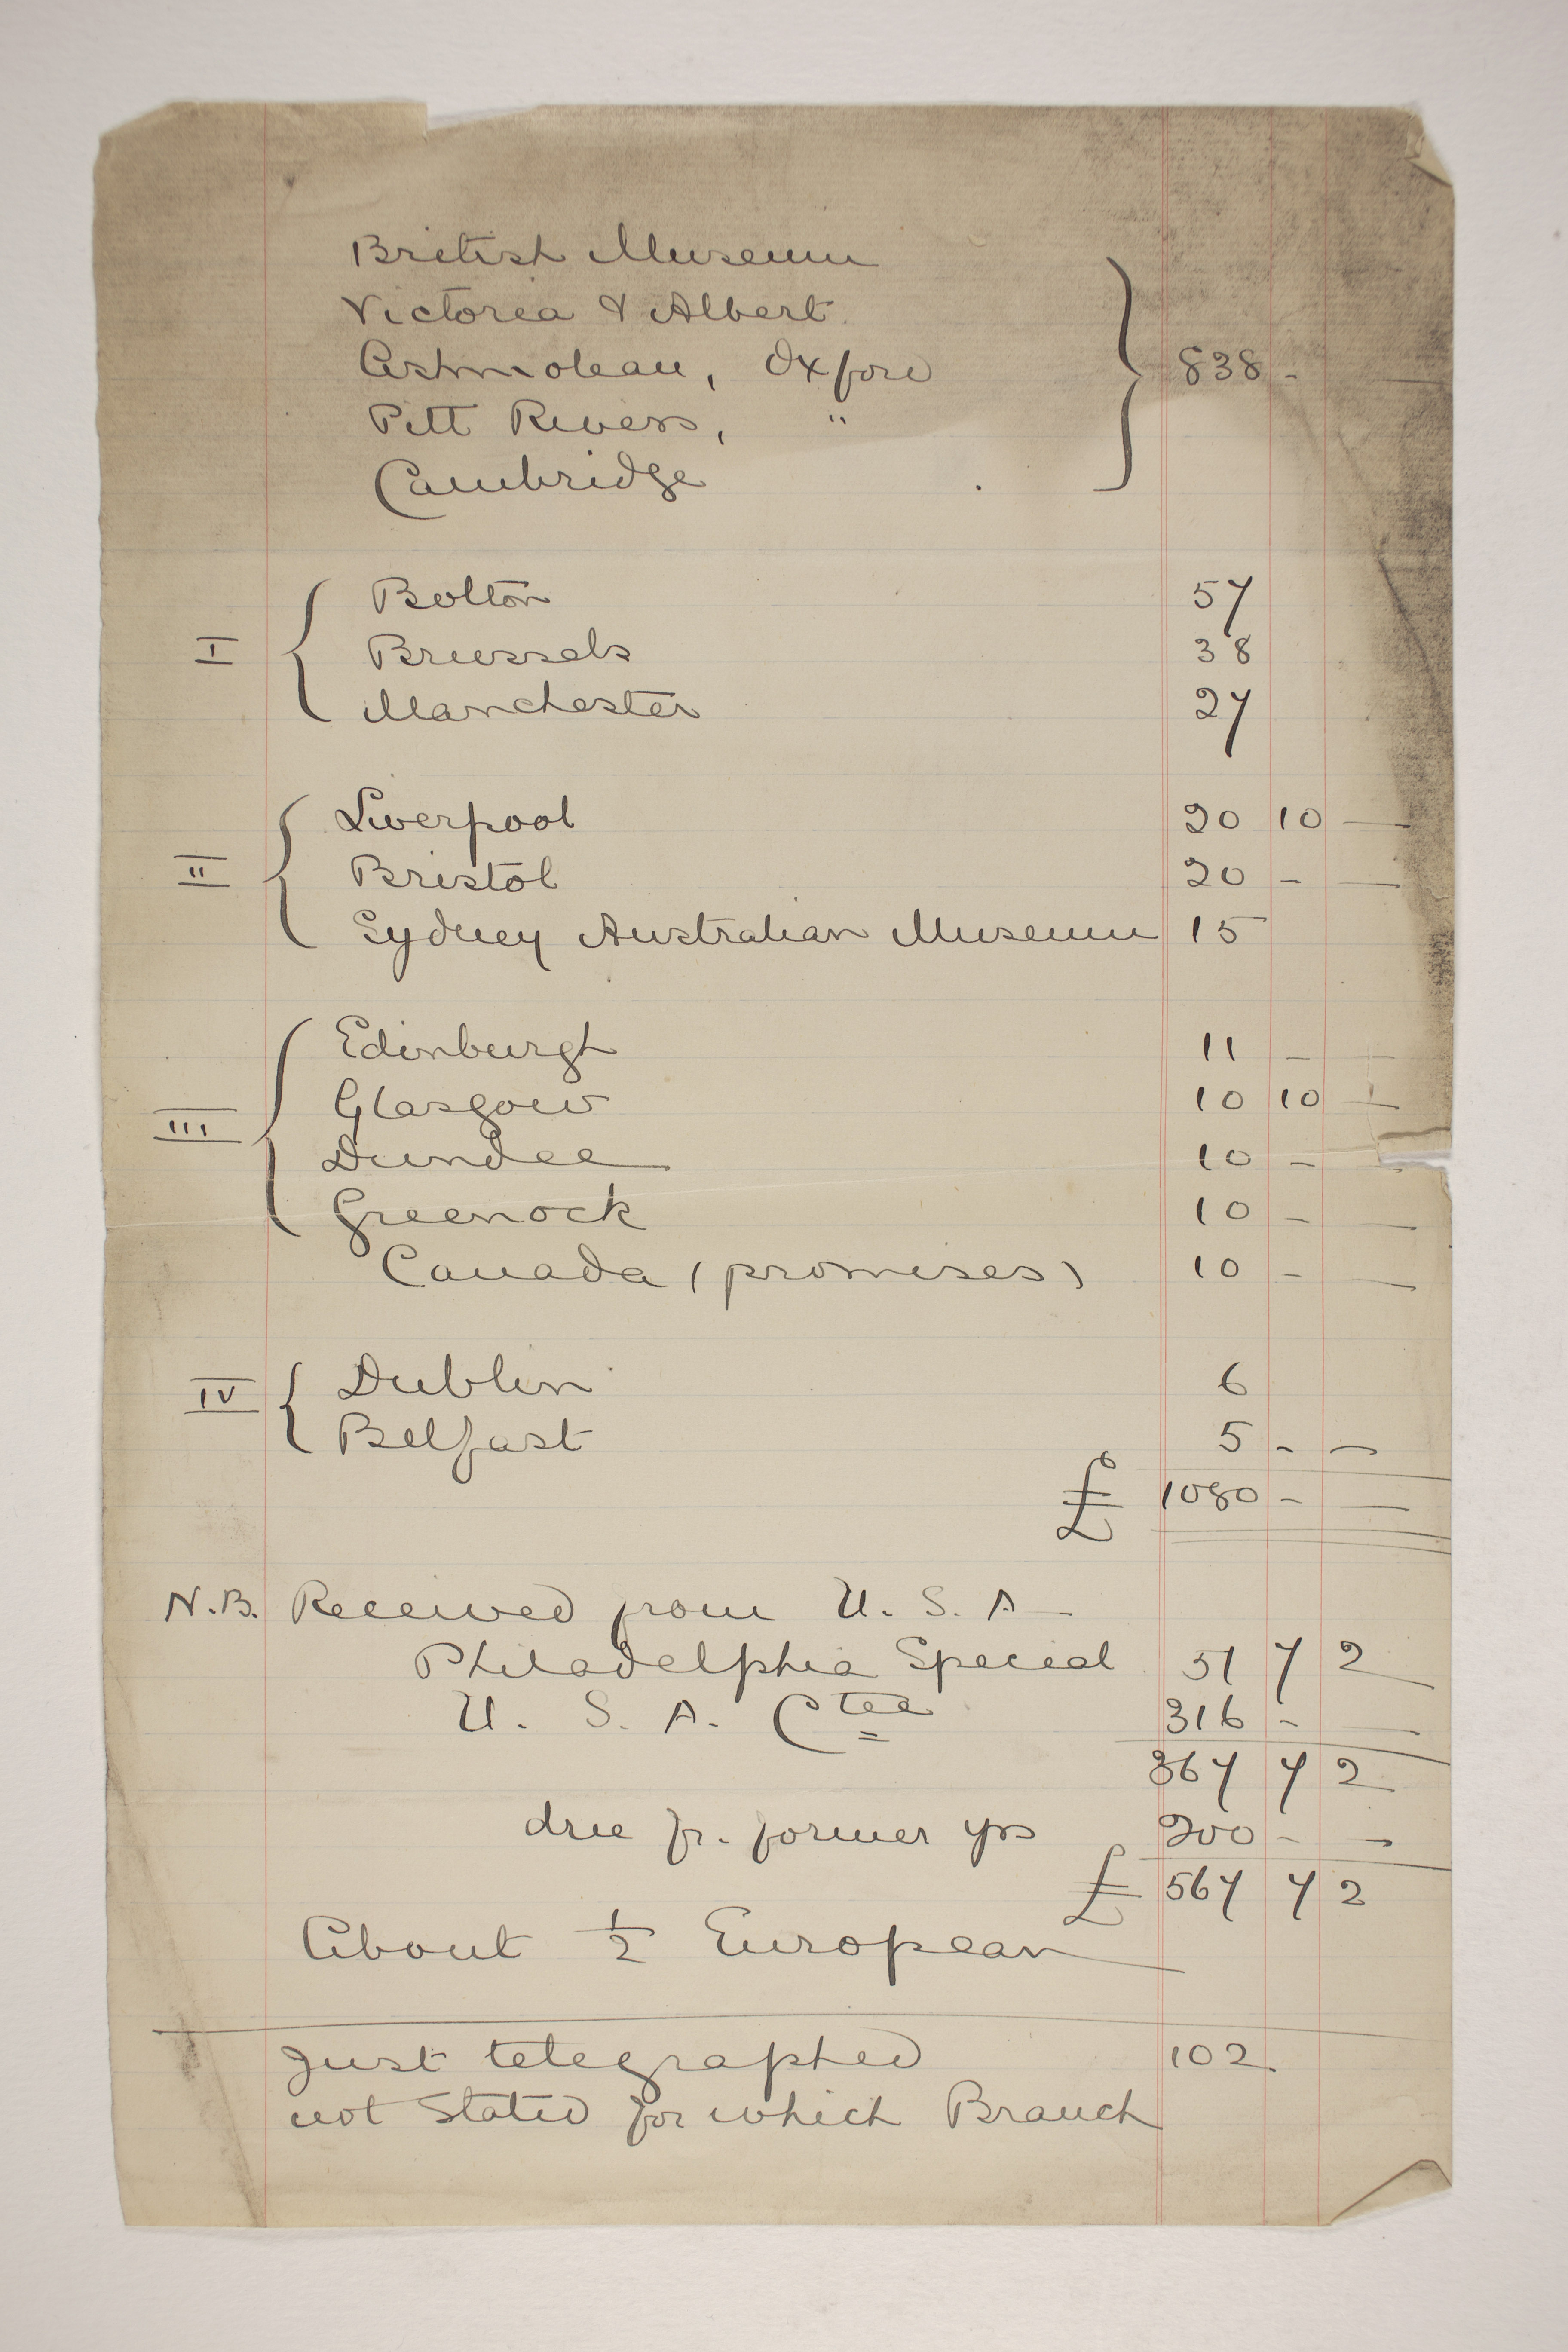 British Museum
Victoria & Albert
Ashmolean, Oxford
Pitt Rivers, "
Cambridge
838 -
I
Bolton 57
Brussels 38
Manchester 27
II
Liverpool 20 10 —
Bristol 20 - —
Sydney Australian Museum 15
III
Edinburgh 11 - —
Glasgow 10 10 —
Dundee 10 - -
Greenock 10 - —
Canada (promises) 10 - —
IV
Dublin 6
Belfast 5 - —
£ 1080 - —
N.B. Received from U. S. A -
Philadelphia Special 51 7 2
U. S. A. Ctee 316 - —
367 7 2
due fr. former yrs 200 - -
£ 567 7 2
About 1/2 European
Just telegraphed 102.
not stated for which Branch